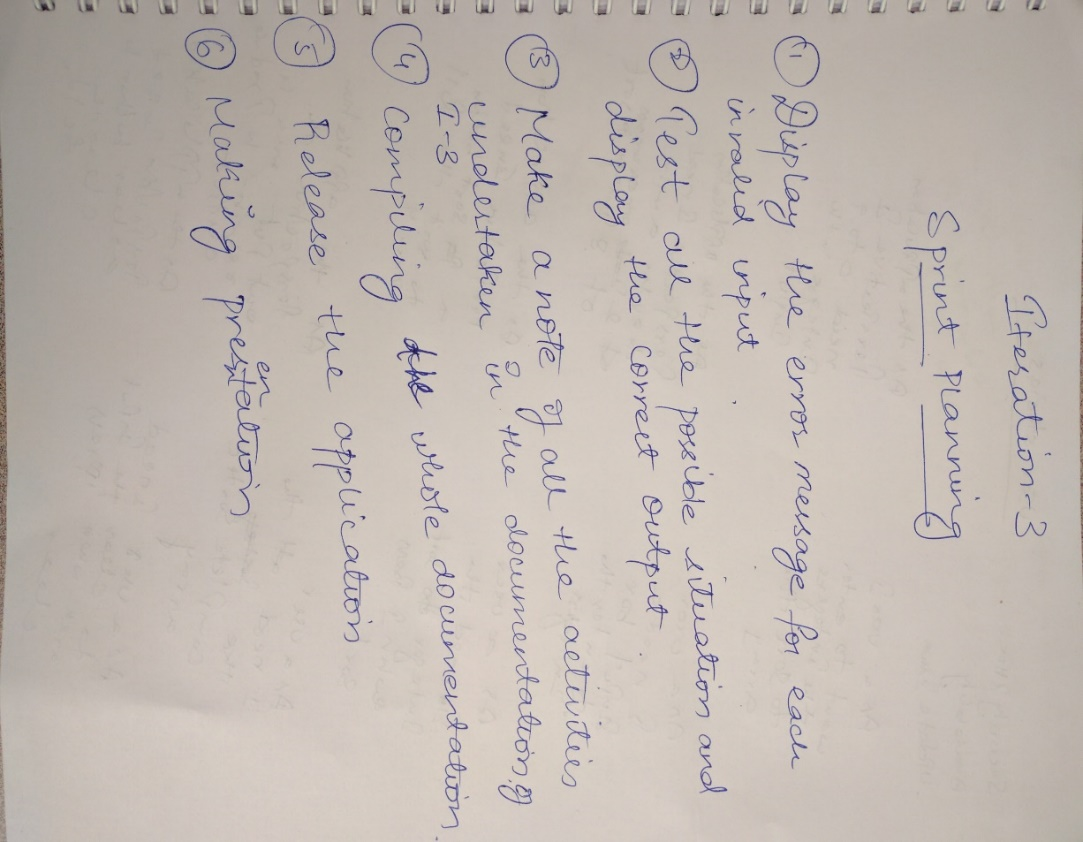 Iteration-3
Sprint Planning
① Display the error message for each
invalid input.
② Test all the possible situation and
display the correct output
③ Make a note of all the activities
undertaken in the documentation of
I-3
④ Compiling whole documentation.
⑤ Release the application
⑥ Making presentation